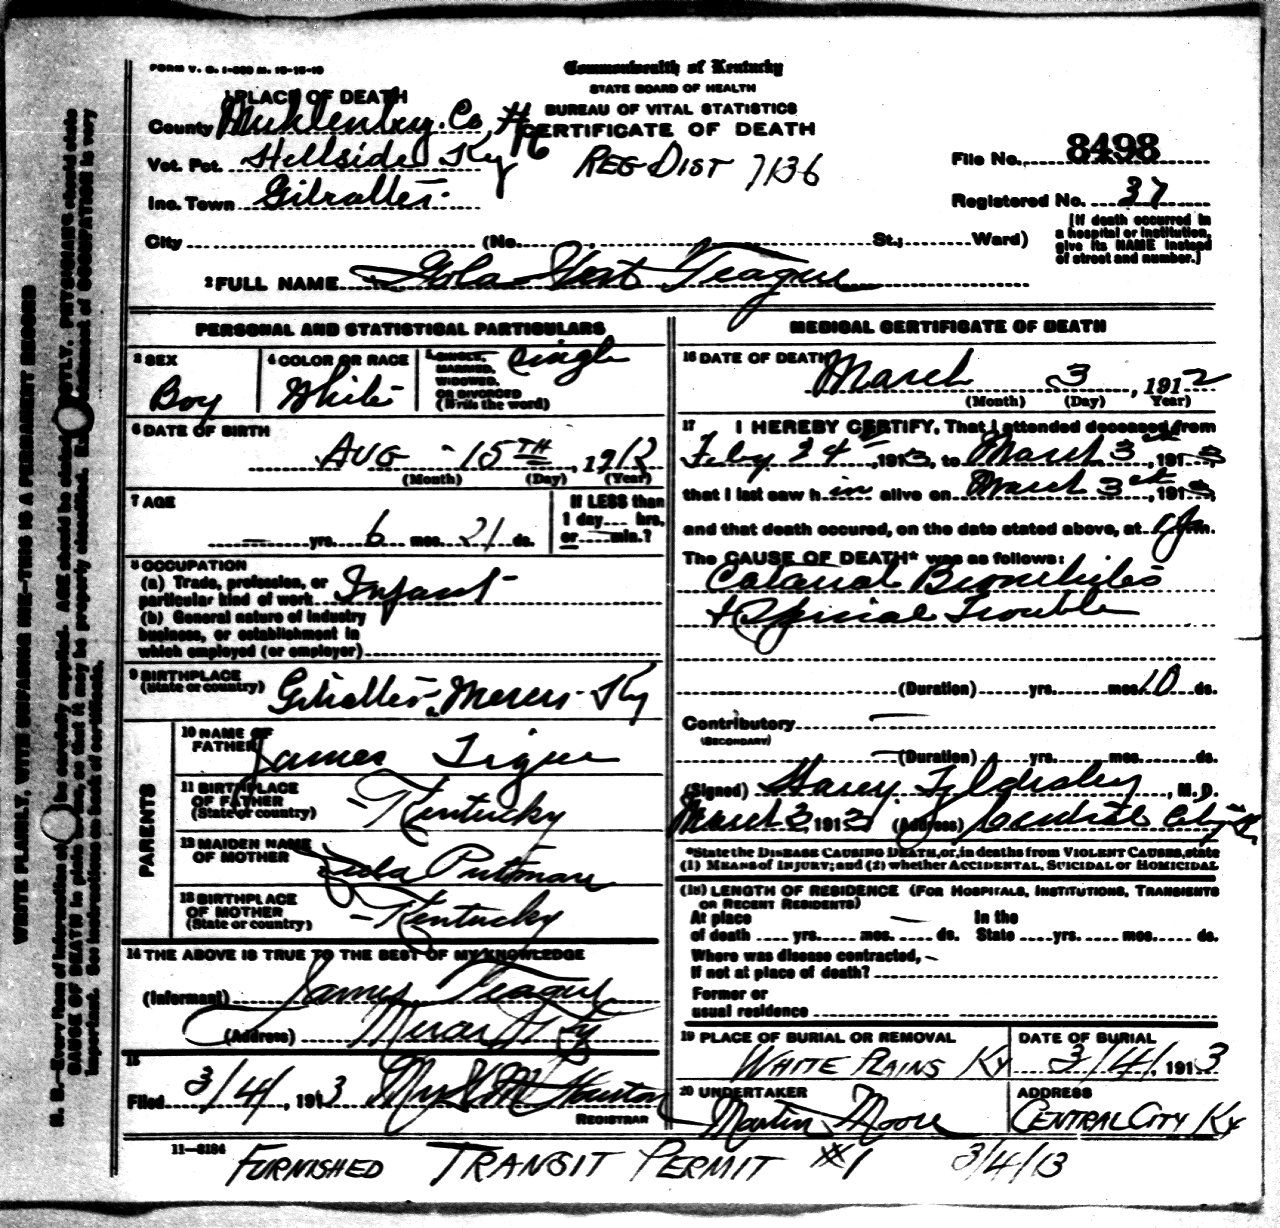 FORM V. S. 1-200 M. 10-15-10
Commonwealth of Kentucky
STATE BOARD OF HEALTH
BUREAU OF VITAL STATISTICS
CERTIFICATE OF DEATH
1 PLACE OF DEATH
County Muhlenburg. Co
Vot. Pct. Hillside Ky
Inc. Town Gilralter.
REG DIST 7136
File No. 8498
Registered No. 37
[If death occurred in
a hospital or institution,
give its NAME instead
of street and number.]
City (No. St.; Ward)
2 FULL NAME Teague
PERSONAL AND STATISTICAL PARTICULARS
3 SEX
Boy
4 COLOR OR RACE
White
5 SINGLE, single
MARRIED,
WIDOWED,
OR DIVORCED
(Write the word)
6 DATE OF BIRTH
AUG - 15TH, 1912
(Month) (Day) (Year)
7 AGE
— yrs. 6 mos. 21 ds.
If LESS than
1 day.... hrs.
or ....min.?
8 OCCUPATION
(a) Trade, profession, or
particular kind of work Infant
(b) General nature of industry
business, or establishment in
which employed (or employer)
9 BIRTHPLACE
(State or country) Gilralter Mercer Ky
PARENTS
10 NAME OF
FATHER James Tigue
11 BIRTHPLACE
OF FATHER
(State or country) Kentucky
12 MAIDEN NAME
OF MOTHER Putman
13 BIRTHPLACE
OF MOTHER
(State or country) Kentucky
14 THE ABOVE IS TRUE TO THE BEST OF MY KNOWLEDGE
(Informant) James Teague
(Address) Mercer Ky
15
Filed 3/4/, 1913 Houston
REGISTRAR
MEDICAL CERTIFICATE OF DEATH
16 DATE OF DEATH
March 3, 1912
(Month) (Day) Year)
17 I HEREBY CERTIFY, That I attended deceased from
Feby 24th, 1913, to March 3rd, 1913,
that I last saw him alive on March 3rd, 1913,
and that death occured, on the date stated above, at m.
The CAUSE OF DEATH* was as follows:
Bronchitis
+ Spinal Trouble
(Duration) yrs. mos. 10 ds.
Contributory —
(SECONDARY)
(Duration) yrs. mos. ds.
(Signed) Harry, M. D.
March 3, 1913 (Address) Central City Ky
*State the DISEASE CAUSING DEATH, or, in deaths from VIOLENT CAUSES, state
(1) MEANS of INJURY; and (2) whether ACCIDENTAL, SUICIDAL or HOMICIDAL
(18) LENGTH OF RESIDENCE (FOR HOSPITALS, INSTITUTIONS, TRANSIENTS
OR RECENT RESIDENTS)
At place In the
of death .... yrs. mos. ds. State yrs. mos. ds.
Where was disease contracted,
if not at place of death?
Former or
usual residence
19 PLACE OF BURIAL OR REMOVAL
WHITE PLAINS KY
DATE OF BURIAL
3/4/, 1913
20 UNDERTAKER
Martin Moore
ADDRESS
CENTRAL CITY KY
11—8184
FURNISHED TRANSIT PERMIT #1 3/4/13
WRITE PLAINLY, WITH UNFADING INK—THIS IS A PERMANENT RECORD
N. B.—Every item of information should be carefully supplied. AGE should be stated EXACTLY. PHYSICIANS should state
CAUSE OF DEATH in plain terms, so that it may be properly classified. Exact statement of OCCUPATION is very
important. See instructions on back of certificate.